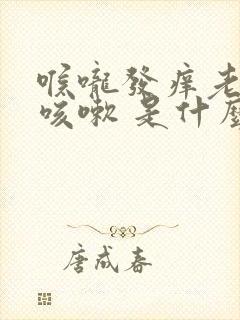 喉嚨發痒老
咳嗽是什麼
唐成春